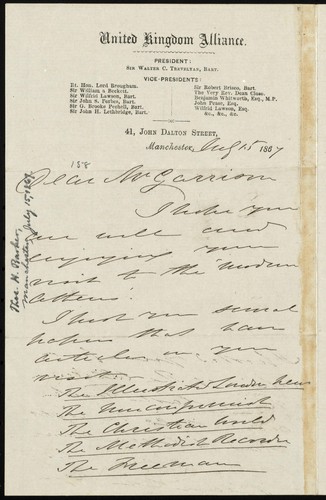 United Kingdom Alliance.
PRESIDENT:
SIR WALTER C. TREVELYAN, BART.
VICE-PRESIDENTS:
Rt. Hon. Lord Brougham.
Sir William à Beckett.
Sir Wilfrid Lawson, Bart.
Sir John S. Forbes, Bart.
Sir G. Brooke Pechell, Bart.
Sir John H. Lethbridge, Bart.
Sir Robert Brisco, Bart.
The Very Rev. Dean Close.
Benjamin Whitworth, Esq., M.P.
John Pease, Esq.
Wilfrid Lawson, Esq.
&c., &c., &c.
41, JOHN DALTON STREET,
Manchester, July 15 1867
158
Dear Mr Garrison
I hope you
are well and
enjoying your
visit to the "modern
Athens".
I post you several
papers that have
articles on your
visit.
The Illustrated London News
The Nonconformist
The Christian World
The Methodist Recorder
The Freeman
Thos. H. Barker,
Manchester, July 15, 1867.